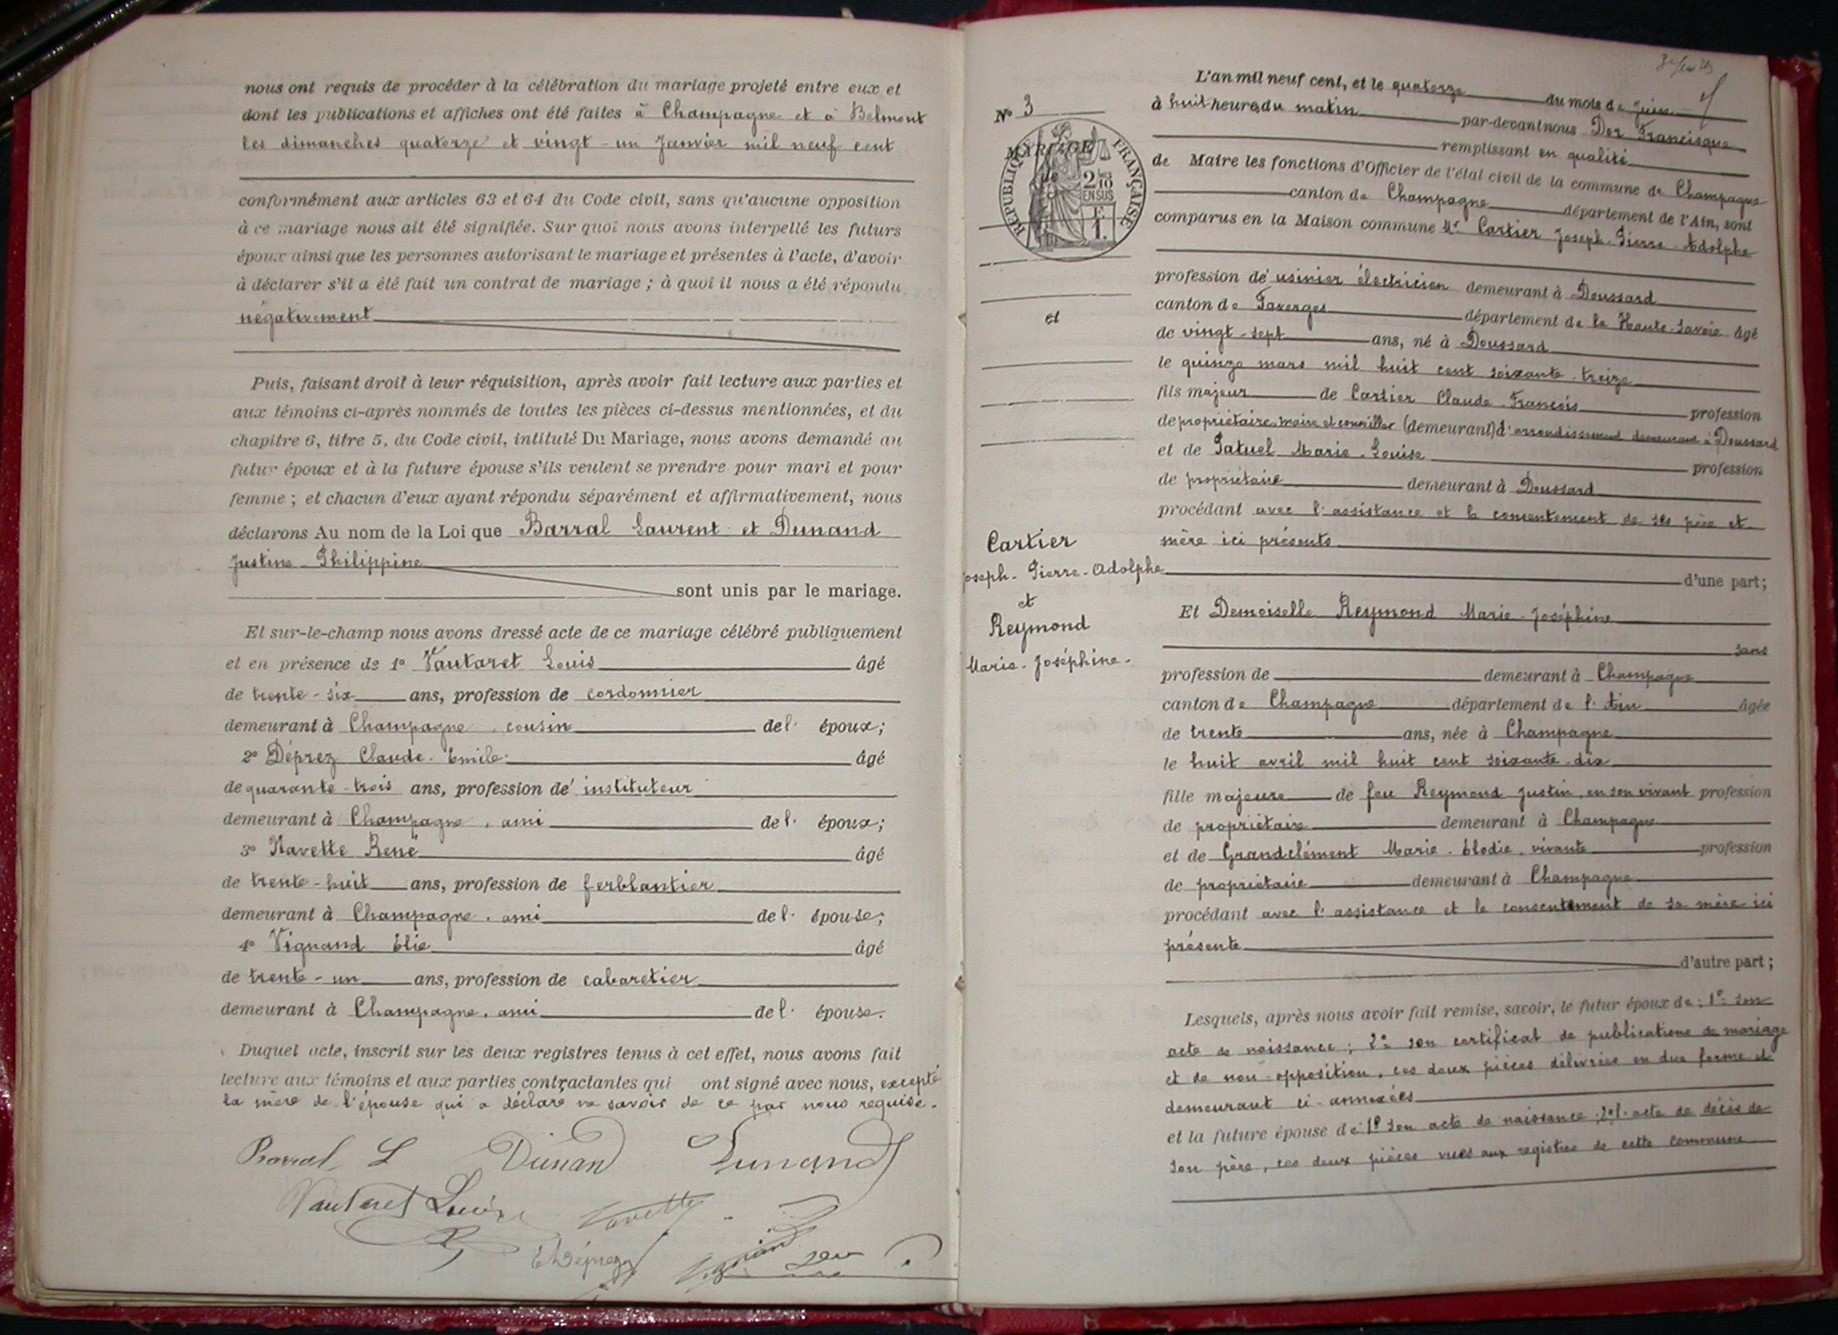 nous ont requis de procéder à la célébration du mariage projeté entre eux et
dont les publications et affiches ont été faites à Champagne et à Belmont
les dimanches quatorze et vingt-un Janvier mil neuf cent
conformément aux articles 63 et 64 du Code civil, sans qu'aucune opposition
à ce mariage nous ait été signifiée. Sur quoi nous avons interpellé les futurs
époux ainsi que les personnes autorisant le mariage et présentes à l'acte, d'avoir
à déclarer s'il a été fait un contrat de mariage ; à quoi il nous a été répondu
négativement
Puis, faisant droit à leur réquisition, après avoir fait lecture aux parties et
aux témoins ci-après nommés de toutes les pièces ci-dessus mentionnées, et du
chapitre 6, titre 5, du Code civil, intitulé Du Mariage, nous avons demandé au
futur époux et à la future épouse s'ils veulent se prendre pour mari et pour
femme ; et chacun d'eux ayant répondu séparément et affirmativement, nous
déclarons Au nom de la Loi que Barral Laurent et Dunand
Justine-Philippine
sont unis par le mariage.
Et sur-le-champ nous avons dressé acte de ce mariage célébré publiquement
et en présence de 1° Vautaret Louis âgé
de trente-six ans, profession de cordonnier
demeurant à Champagne, cousin de l' époux;
2° Déprez Claude-Emile âgé
de quarante-trois ans, profession d' instituteur
demeurant à Champagne, ami de l' époux;
3° Navette René âgé
de trente-huit ans, profession de ferblantier
demeurant à Champagne, ami de l' épouse;
4° Vignand Elie âgé
de trente-un ans, profession de cabaretier
demeurant à Champagne, ami de l' épouse.
Duquel acte, inscrit sur les deux registres tenus à cet effet, nous avons fait
lecture aux témoins et aux parties contractantes qui ont signé avec nous, excepté
la mère de l'épouse qui a déclaré ne savoir de ce par nous requise.
Barral L Dunan Dunand
Vautaret Louis Navette
E Déprez Der
N° 3
MARIAGE
de
RÉPUBLIQUE FRANÇAISE
2/10
EN SUS
1 F
et
Cartier
Joseph-Pierre-Adolphe
et
Reymond
Marie-Joséphine-
L'an mil neuf cent, et le quatorze du mois de Juin
à huit heures du matin par-devant nous Der Francisque
remplissant en qualité
de Maire les fonctions d'Officier de l'état civil de la commune de Champagne
canton de Champagne département de l'Ain, sont
comparus en la Maison commune Mr Cartier Joseph-Pierre-Adolphe
profession d' usinier électricien demeurant à Doussard
canton de Faverges département de la Haute-Savoie âgé
de vingt-sept ans, né à Doussard
le quinze mars mil huit cent soixante-treize
fils majeur de Cartier Claude-François profession
de propriétaire, maire et conseiller (demeurant) d'arrondissement demeurant à Doussard
et de Patuel Marie-Louise profession
de propriétaire demeurant à Doussard
procédant avec l'assistance et le consentement de ses père et
mère ici présents
d'une part;
Et Demoiselle Reymond Marie-Joséphine
sans
profession de demeurant à Champagne
canton de Champagne département de l'Ain âgée
de trente ans, née à Champagne
le huit avril mil huit cent soixante-dix
fille majeure de feu Reymond Justin, en son vivant profession
de propriétaire demeurant à Champagne
et de Grandclément Marie-Elodie, vivante profession
de propriétaire demeurant à Champagne
procédant avec l'assistance et le consentement de sa mère ici
présente
d'autre part;
Lesquels, après nous avoir fait remise, savoir, le futur époux de: 1° son
acte de naissance; 2° son certificat de publications de mariage
et de non-opposition, ces deux pièces délivrées en due forme et
demeurant ci-annexées
et la future épouse de: 1° son acte de naissance; 2° l'acte de décès de
son père, ces deux pièces vues aux registres de cette commune